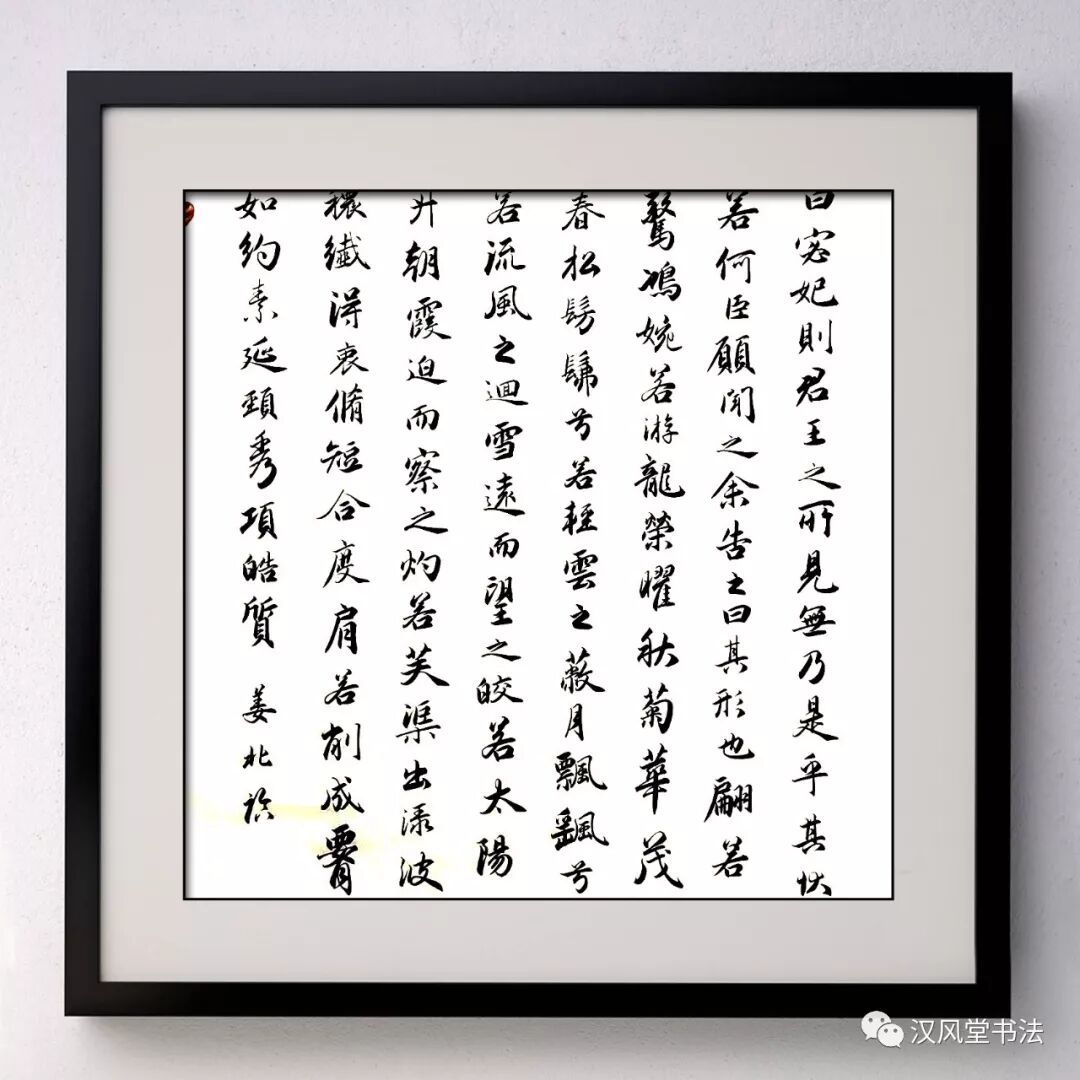 曰宓妃則君王之所見無乃是乎其状
若何臣願聞之余告之曰其形也翩若
驚鴻婉若游龍榮曜秋菊華茂
春松髣髴兮若輕雲之蔽月飄颻兮
若流風之迴雪遠而望之皎若太陽
升朝霞迫而察之灼若芙渠出渌波
穠纖得衷脩短合度肩若削成腰
如約素延頸秀項皓質 姜北
汉风堂书法